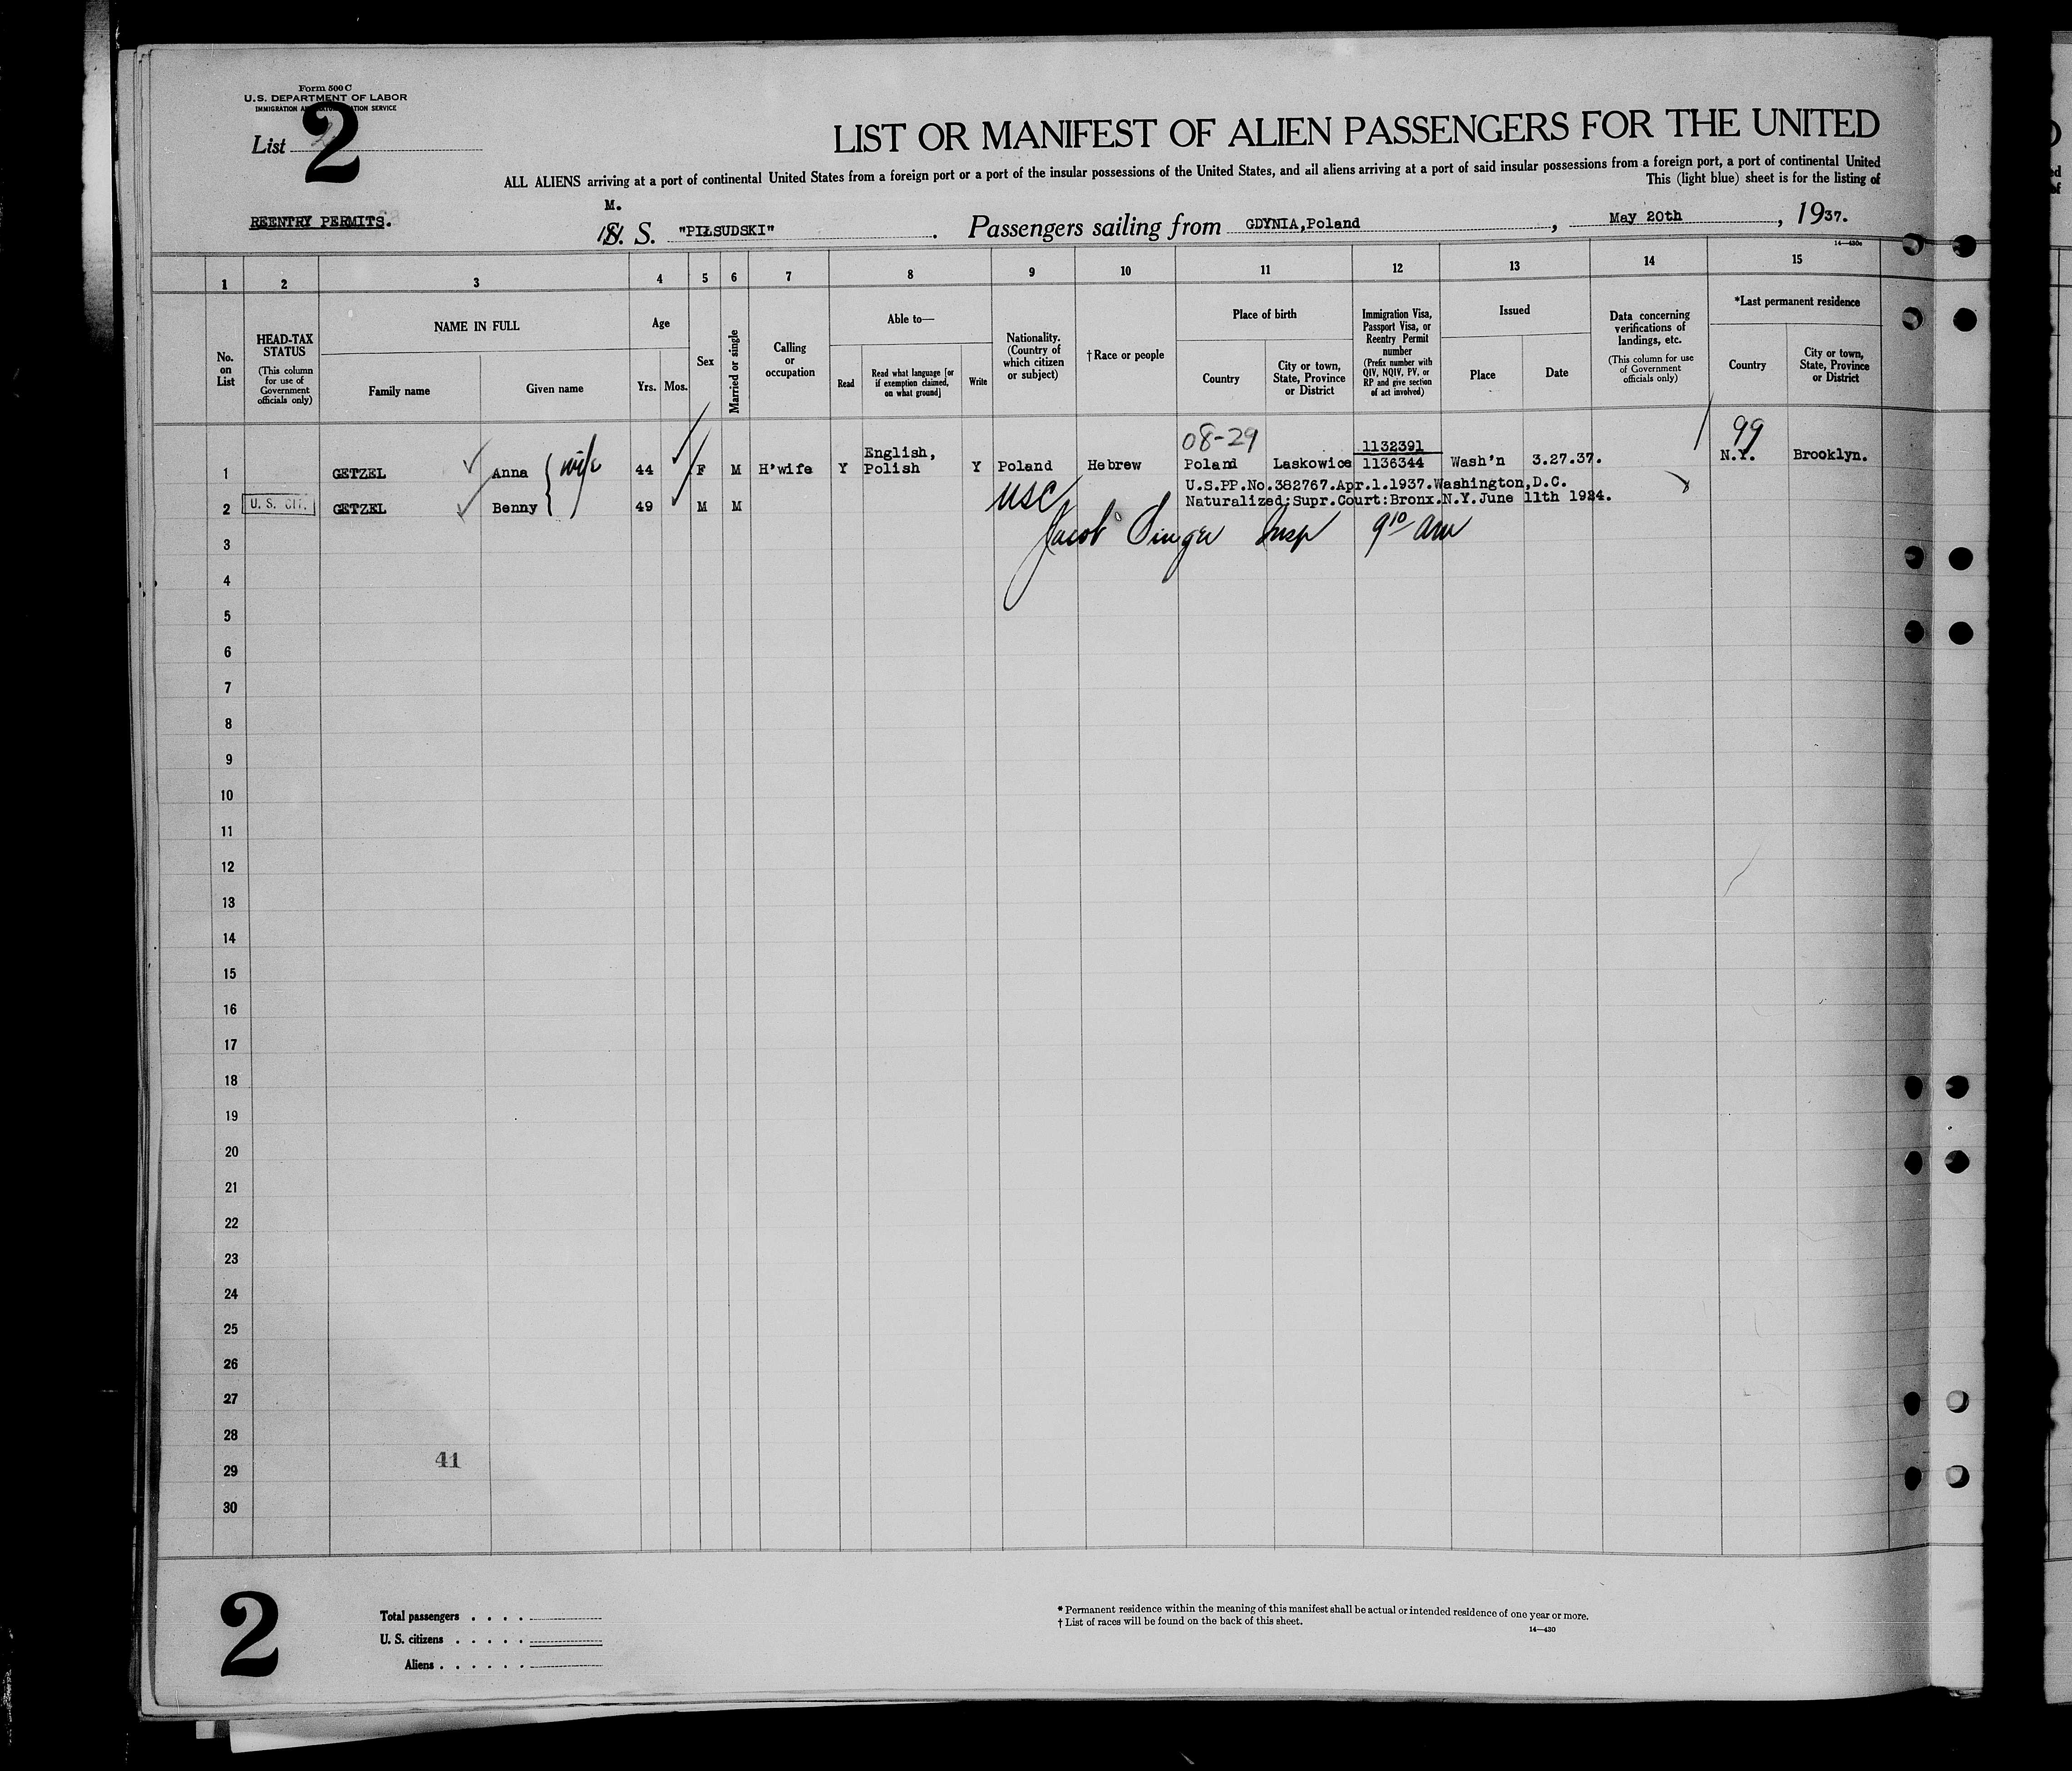 Form 500 C
U.S. DEPARTMENT OF LABOR
IMMIGRATION AND NATURALIZATION SERVICE
List 2
LIST OR MANIFEST OF ALIEN PASSENGERS FOR THE UNITED
ALL ALIENS arriving at a port of continental United States from a foreign port or a port of the insular possessions of the United States, and all aliens arriving at a port of said insular possessions from a foreign port, a port of continental United
This (light blue) sheet is for the listing of
REENTRY PERMITS.
M.
S. S. "PIŁSUDSKI". Passengers sailing from GDYNIA,Poland, May 20th, 1937.
14—430c
1 2 3 4 5 6 7 8 9 10 11 12 13 14 15
No. on List
HEAD-TAX STATUS
(This column for use of Government officials only)
NAME IN FULL
Family name
Given name
Age
Yrs. Mos.
Sex
Married or single
Calling or occupation
Able to—
Read
Read what language [or if exemption claimed, on what ground]
Write
Nationality. (Country of which citizen or subject)
† Race or people
Place of birth
Country
City or town, State, Province or District
Immigration Visa, Passport Visa, or Reentry Permit number
(Prefix number with QIV, NQIV, PV, or RP and give section of act involved)
Issued
Place
Date
Data concerning verifications of landings, etc.
(This column for use of Government officials only)
*Last permanent residence
Country
City or town, State, Province or District
08-29
99
1132391
1 GETZEL Anna wife 44 F M H'wife Y English, Polish Y Poland Hebrew Poland Laskowice 1136344 Wash'n 3.27.37. N.Y. Brooklyn.
U.S.PP.No.382767.Apr.1.1937.Washington,D.C.
2 U. S. CIT. GETZEL Benny 49 M M USC Naturalized:Supr.Court:Bronx.N.Y.June 11th 1924.
Jacob Singer Insp 9 10 am
3
4
5
6
7
8
9
10
11
12
13
14
15
16
17
18
19
20
21
22
23
24
25
26
27
28
41
29
30
2
Total passengers . . . .
U. S. citizens . . . . .
Aliens . . . . . .
* Permanent residence within the meaning of this manifest shall be actual or intended residence of one year or more.
† List of races will be found on the back of this sheet.
14—430